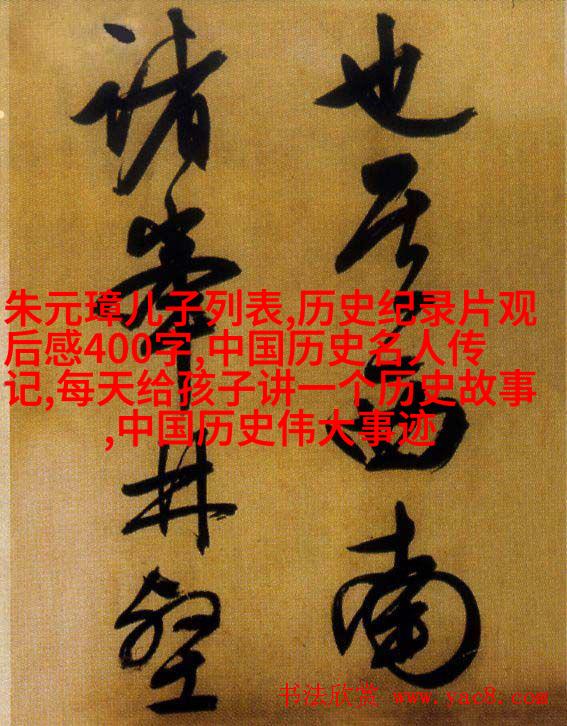 也其西南
諸峯林壑
朱元璋儿子列表,历史纪录片观
后感400字,中国历史名人传
记,每天给孩子讲一个历史故事
,中国历史伟大事迹
书法欣赏 www.yac8.com